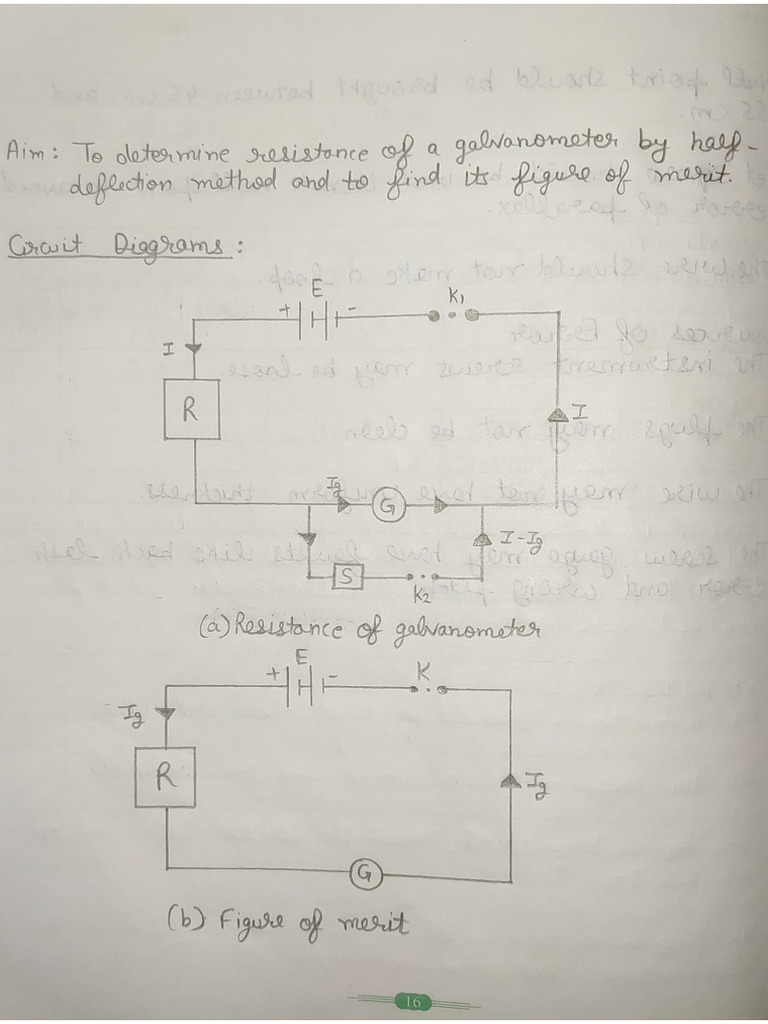 Aim: To determine resistance of a galvanometer by half-
deflection method and to find its figure of merit.
Circuit Diagrams:
E
+ -
K1
I
R
I
Ig
G
I-Ig
S
K2
(a) Resistance of galvanometer
E
+ -
K
Ig
R
Ig
G
(b) Figure of merit
16